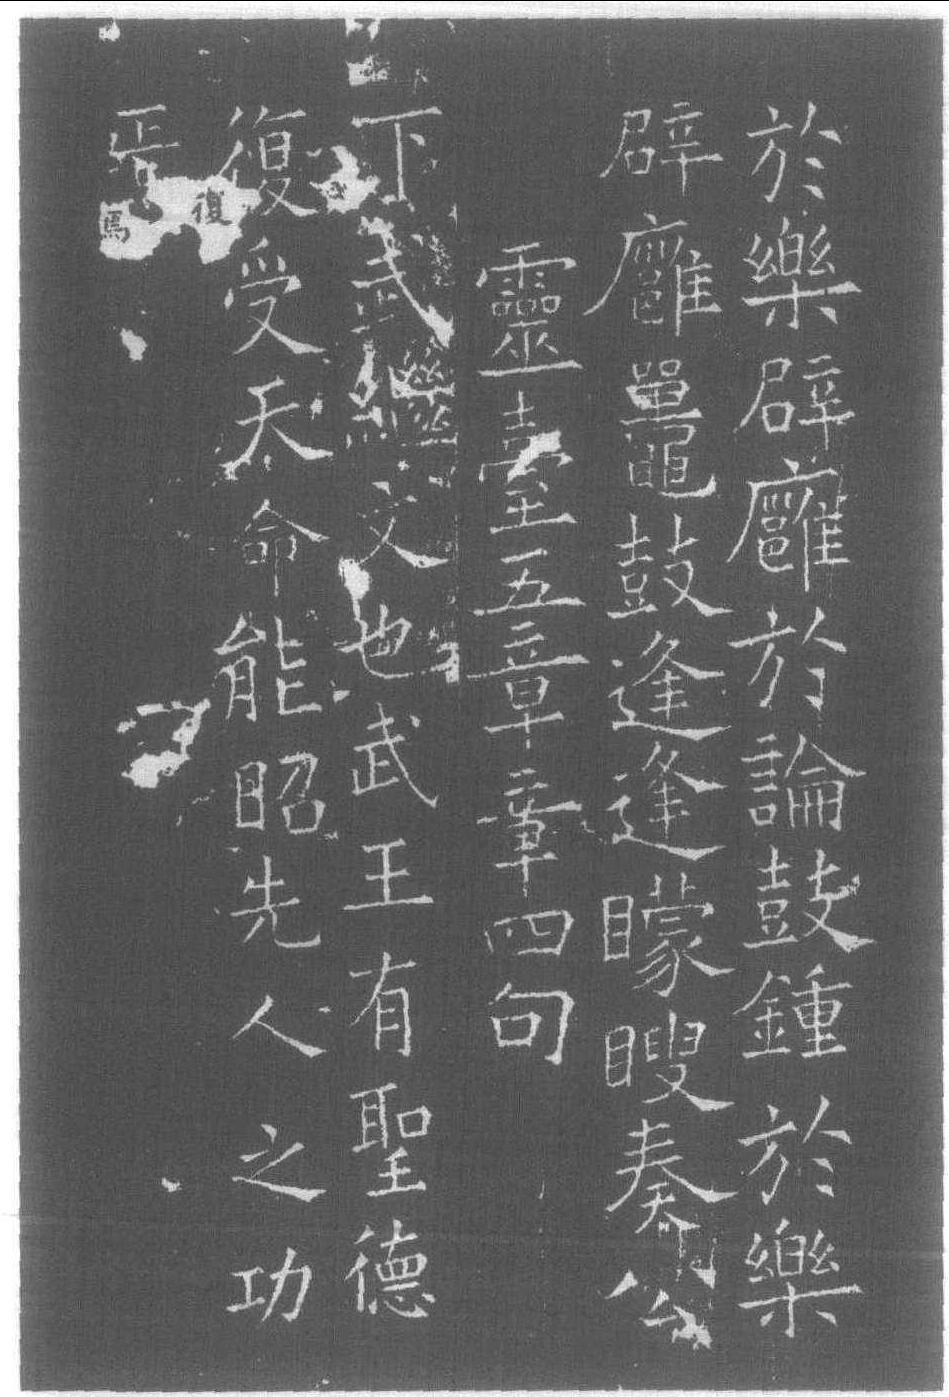 於樂辟廱於論鼓鍾於樂
辟廱鼉鼓逢逢矇瞍奏公
靈臺五章章四句
下武繼文也武王有聖德
復受天命能昭先人之功
焉
復
焉